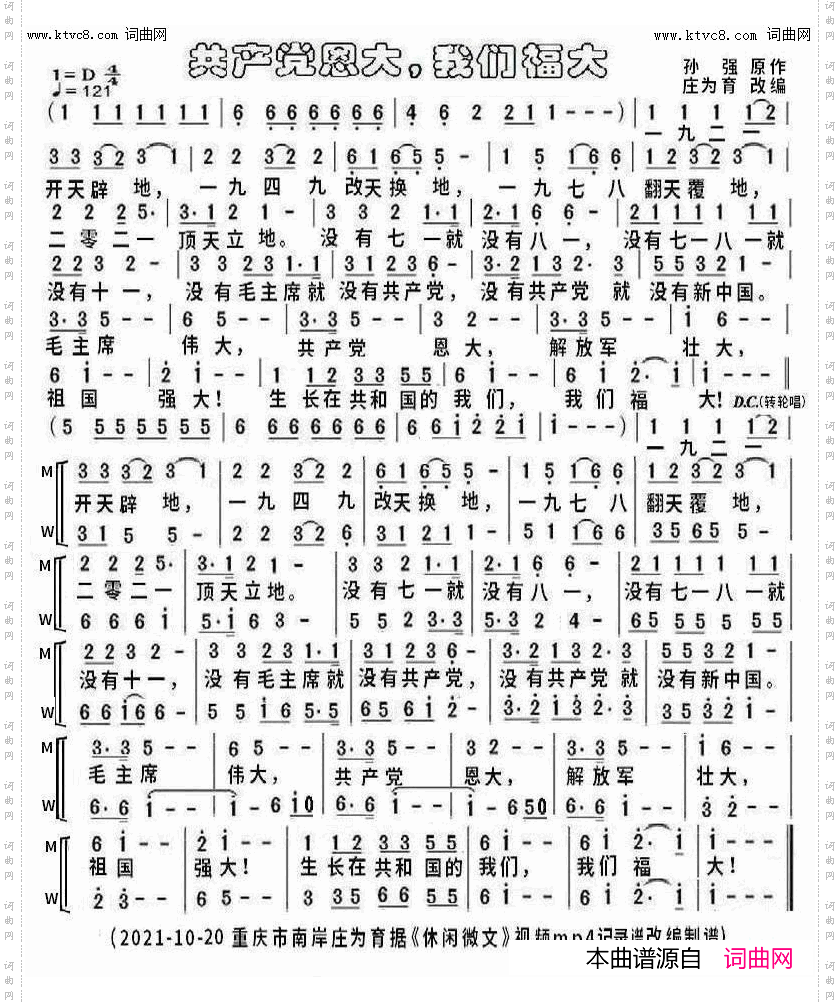 www.ktvc8.com 词曲网
www.ktvc8.com 词曲网
共产党恩大，我们福大
1=D 4/4
♩=121
孙 强 原作
庄为育 改编
(1 1 1 1 1 1 1 | 6 6 6 6 6 6 6 | 4 6 2 2 1 1 | 1 - - - ) | 1 1 1 1 2 |
一九二一
3 3 3 2 3 1 | 2 2 3 2 2 | 6 1 6 5 5 - | 1 5 1 6 6 | 1 2 3 2 3 1 |
开天辟 地， 一九四九 改天换 地， 一九七八 翻天覆 地，
2 2 2 5· | 3·1 2 1 - | 3 3 2 1·1 | 2·1 6 6 - | 2 1 1 1 1 1 1 |
二零二一 顶天立地。 没有七一就 没有八一， 没有七一八一就
2 2 3 2 - | 3 3 2 3 1·1 | 3 1 2 3 6 - | 3·2 1 3 2· 3 | 5 5 3 2 1 - |
没有十一， 没有毛主席就 没有共产党， 没有共产党 就 没有新中国。
3·3 5 - - | 6 5 - - | 3·3 5 - - | 3 2 - - | 3·3 5 - - | i 6 - - |
毛主席 伟大， 共产党 恩大， 解放军 壮大，
6 i - - | 2 i - - | 1 1 2 3 3 5 5 | 6 i - - | 6 i 2· i | i - - - ‖
祖国 强大！ 生长在共和国的 我们， 我们福 大！ D.C.(转轮唱)
(5 5 5 5 5 5 5 | 6 6 6 6 6 6 6 | 6 6 i 2 2 i | i - - - ) | 1 1 1 1 2 |
一九二一
M 3 3 3 2 3 1 | 2 2 3 2 2 | 6 1 6 5 5 - | 1 5 1 6 6 | 1 2 3 2 3 1 |
开天辟 地， 一九四九 改天换 地， 一九七八 翻天覆 地，
W 3 1 5 5 - | 2 2 3 2 6 | 3 1 2 1 1 - | 5 1 1 6 6 | 3 5 6 5 5 - |
M 2 2 2 5· | 3·1 2 1 - | 3 3 2 1·1 | 2·1 6 6 - | 2 1 1 1 1 1 1 |
二零二一 顶天立地。 没有七一就 没有八一， 没有七一八一就
W 6 6 6 i | 5·i 6 3 - | 5 5 2 3·3 | 5·3 2 4 - | 6 5 5 5 5 5 5 |
M 2 2 3 2 - | 3 3 2 3 1·1 | 3 1 2 3 6 - | 3·2 1 3 2· 3 | 5 5 3 2 1 - |
没有十一， 没有毛主席就 没有共产党， 没有共产党 就 没有新中国。
W 6 6 i 6 6 - | 5 5 i 6 5·5 | 6 5 6 i 2 - | 3·2 i 3 2· 3 | 3 5 3 2 i - |
M 3·3 5 - - | 6 5 - - | 3·3 5 - - | 3 2 - - | 3·3 5 - - | i 6 - - |
毛主席 伟大， 共产党 恩大， 解放军 壮大，
W 6·6 i - - | i - 6 i 0 | 6·6 i - - | i - 6 5 0 | 6·6 i - - | 3 2 - - |
M 6 i - - | 2 i - - | 1 1 2 3 3 5 5 | 6 i - - | 6 i 2· i | i - - - ‖
祖国 强大！ 生长在共和国的 我们， 我们福 大！
W 2 3 - - | 6 5 - - | 3 3 5 6 6 5 5 | i 6 - - | i 6 5· i | i - - - ‖
(2021-10-20 重庆市南岸庄为育据《休闲微文》视频mp4记录谱改编制谱)
本曲谱源自 词曲网